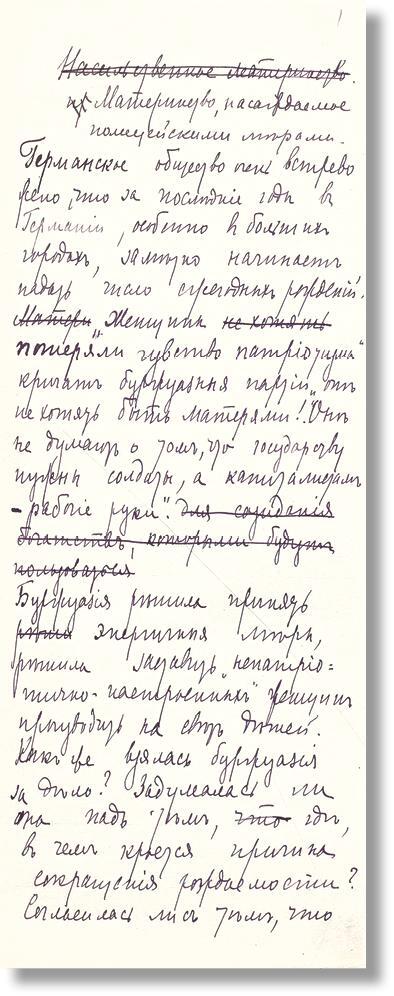 1
Насильственное материнство.
Материнство, насаждаемое
полицейскими мѣрами.
Германское общество очень встрево
жено, что за последніе годы въ
Германіи, особенно въ большихъ
городахъ, замѣтно начинаетъ
падать число ежегодныхъ рожденій.
Матери Женщины не хотятъ
потеряли чувство патріотизма"
кричатъ буржуазныя партіи, "онѣ
не хотятъ быть матерями! Онѣ
не думаютъ о томъ, что государству
нужны солдаты, а капиталистамъ
- рабочіе руки". для созиданія
богатствъ, которыми будутъ
пользоваться
Буржуазія рѣшила принять
рѣшила энергичныя мѣры,
рѣшила заставить "непатріо=
тично-настроенныхъ" женщинъ
производить на свѣтъ дѣтей.
Какъ же взялась буржуазія
за дѣло? Задумалась ли
она надъ тѣмъ, что гдѣ,
въ чемъ кроется причина
сокращенія рождаемости?
Согласилась ли съ тѣмъ, что